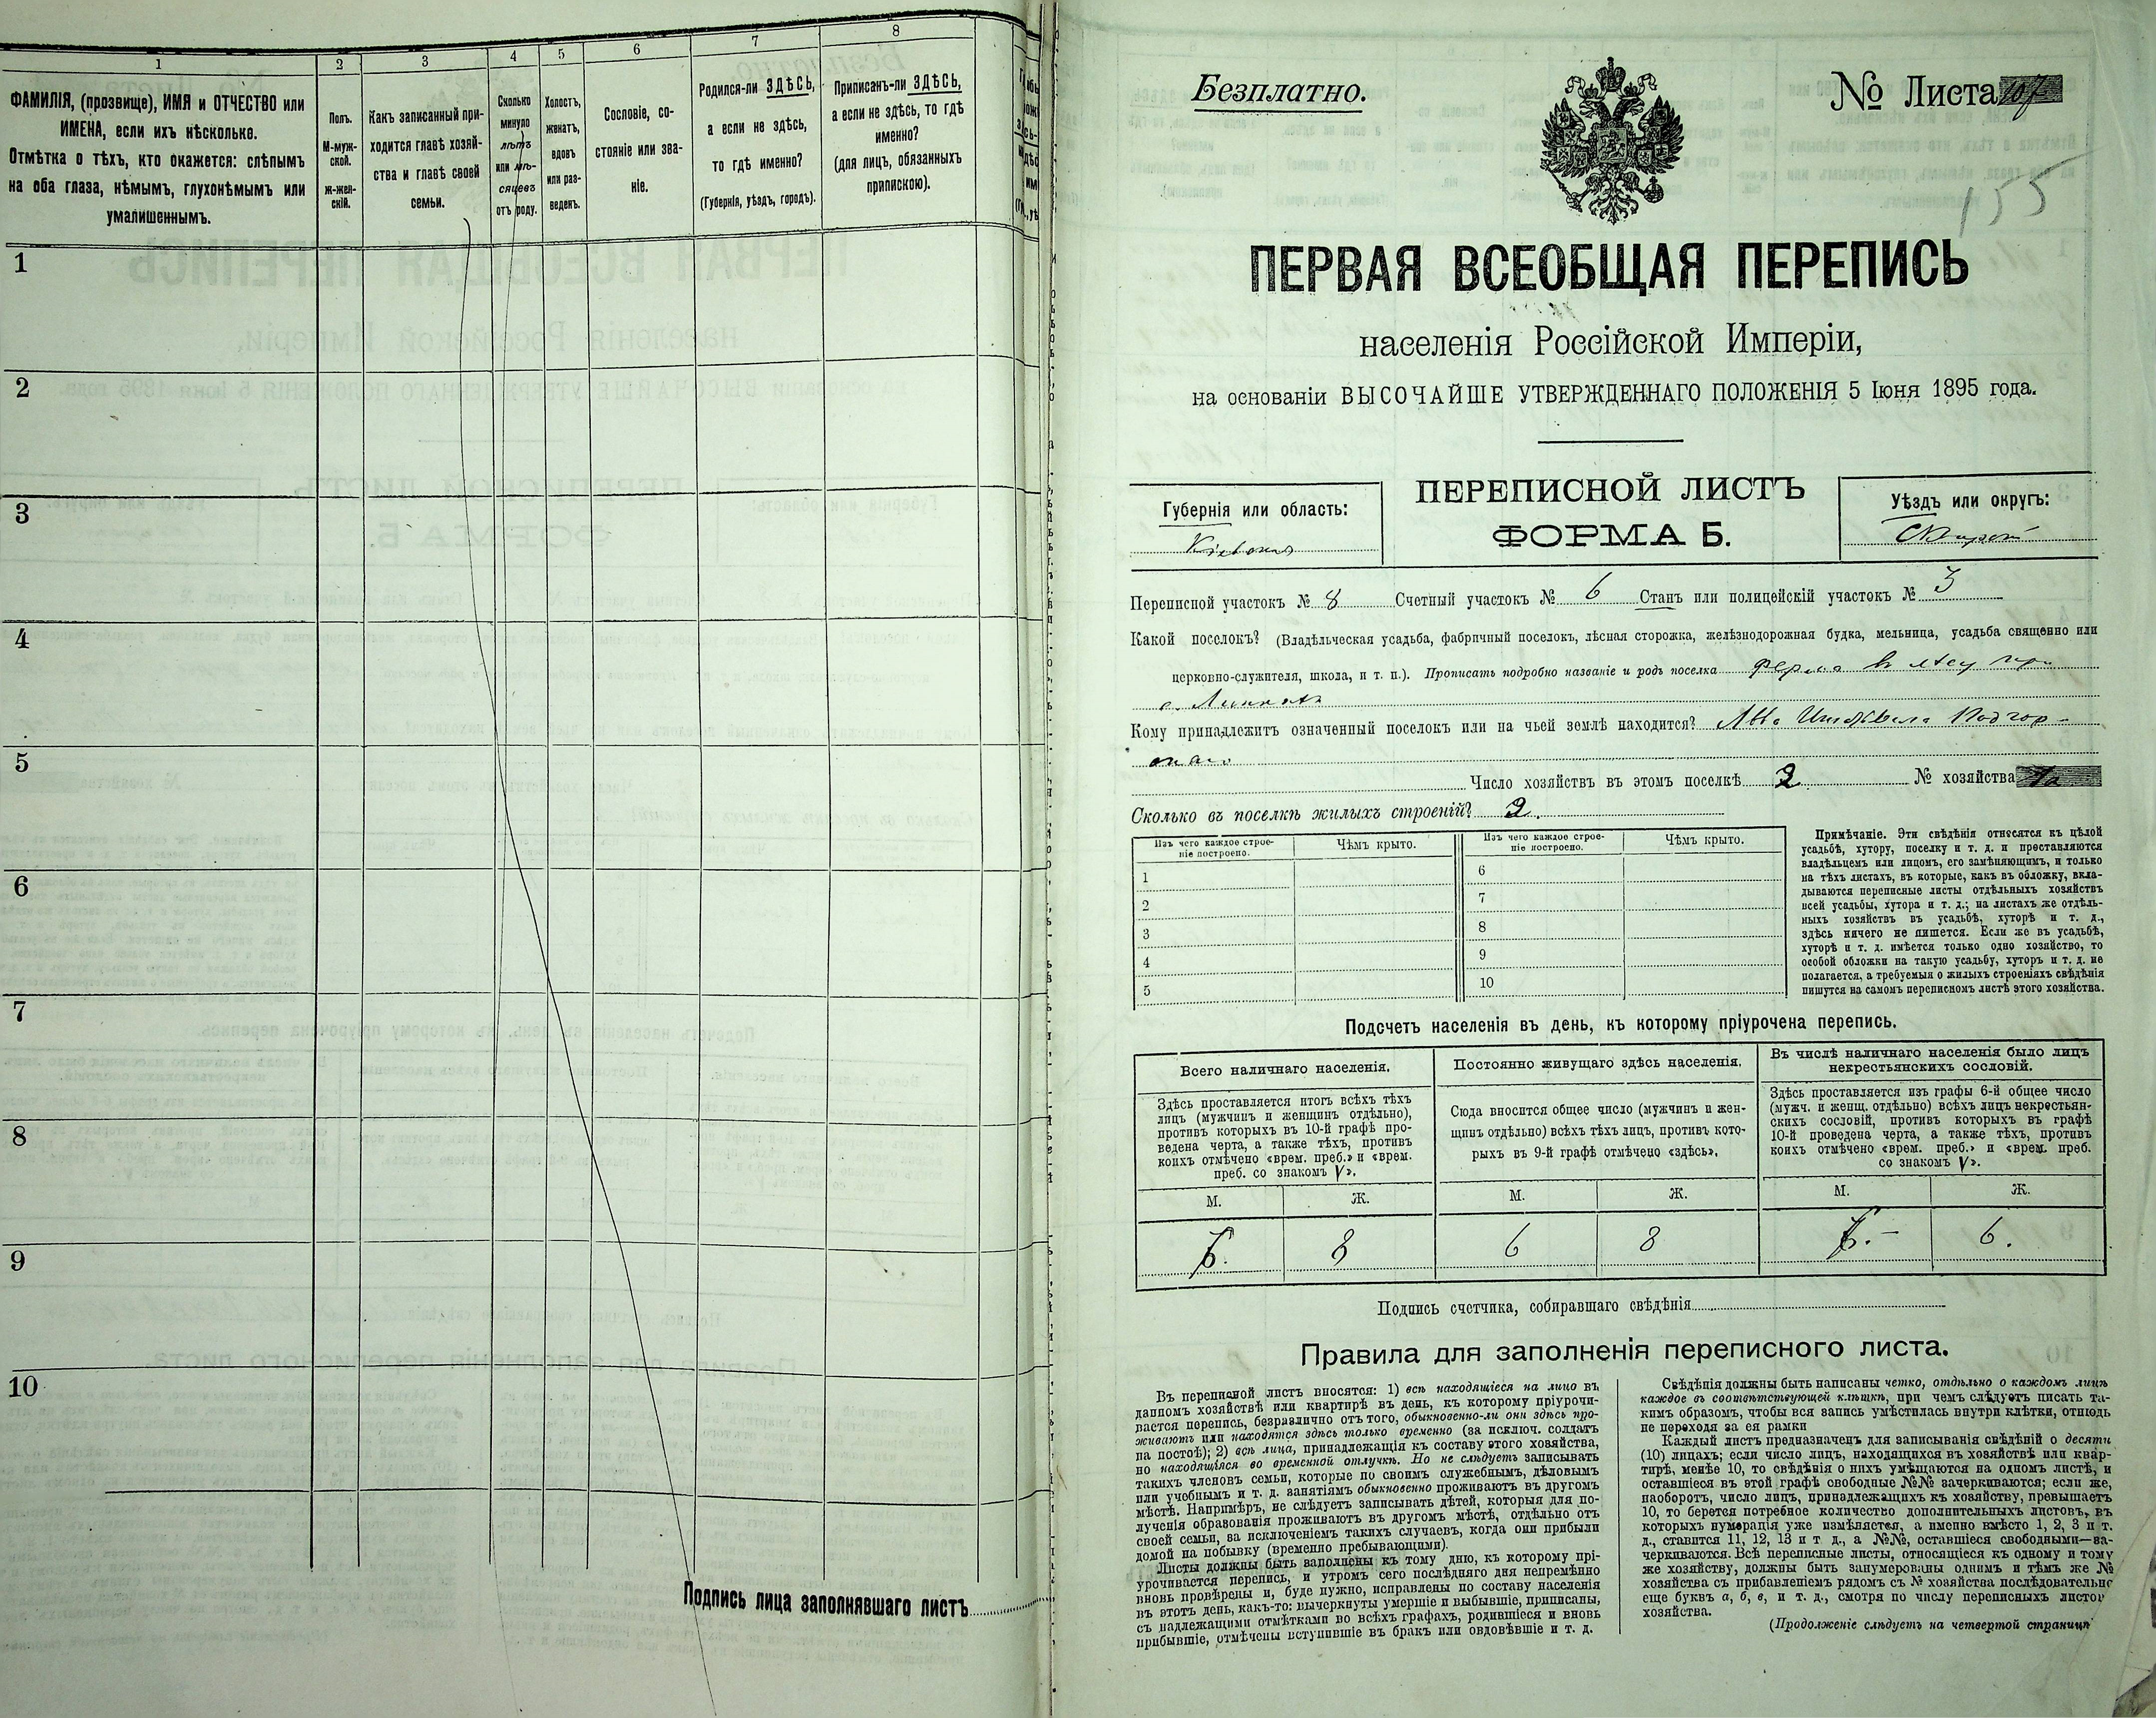 1
2
3
4
5
6
7
8
ФАМИЛІЯ, (прозвище), ИМЯ и ОТЧЕСТВО или
ИМЕНА, если ихъ нѣсколько.
Отмѣтка о тѣхъ, кто окажется: слѣпымъ
на оба глаза, нѣмымъ, глухонѣмымъ или
умалишеннымъ.
Полъ.
М-муж-
ской.
ж-жен-
скій.
Какъ записанный при-
ходится главѣ хозяй-
ства и главѣ своей
семьи.
Сколько
минуло
лѣтъ
или мѣ-
сяцевъ
отъ роду.
Холостъ,
женатъ,
вдовъ
или раз-
веденъ.
Сословіе, со-
стояніе или зва-
ніе.
Родился-ли ЗДѢСЬ,
а если не здѣсь,
то гдѣ именно?
(Губернія, уѣздъ, городъ).
Приписанъ-ли ЗДѢСЬ,
а если не здѣсь, то гдѣ
именно?
(для лицъ, обязанныхъ
припискою).
1
2
3
4
5
6
7
8
9
10
Подпись лица заполнявшаго листъ
Безплатно.
№ Листа 107
155
ПЕРВАЯ ВСЕОБЩАЯ ПЕРЕПИСЬ
населенія Россійской Имперіи,
на основаніи ВЫСОЧАЙШЕ УТВЕРЖДЕННАГО ПОЛОЖЕНІЯ 5 Іюня 1895 года.
Губернія или область:
Кіевская
ПЕРЕПИСНОЙ ЛИСТЪ
ФОРМА Б.
Уѣздъ или округъ:
Переписной участокъ № 8 Счетный участокъ № 6 Станъ или полицейскій участокъ № 3
Какой поселокъ? (Владѣльческая усадьба, фабричный поселокъ, лѣсная сторожка, желѣзнодорожная будка, мельница, усадьба священно или
церковно-служителя, школа, и т. п.). Прописать подробно названіе и родъ поселка ферма въ лѣсу при
с.
Кому принадлежитъ означенный поселокъ или на чьей землѣ находится? Подгор-
Число хозяйствъ въ этомъ поселкѣ 2 № хозяйства
Сколько въ поселкѣ жилыхъ строеній? 2.
Изъ чего каждое строе-
ніе построено.
Чѣмъ крыто.
Изъ чего каждое строе-
ніе построено.
Чѣмъ крыто.
1
2
3
4
5
6
7
8
9
10
Примѣчаніе. Эти свѣдѣнія относятся къ цѣлой
усадьбѣ, хутору, поселку и т. д. и преставляются
владѣльцемъ или лицомъ, его замѣняющимъ, и только
на тѣхъ листахъ, въ которые, какъ въ обложку, вкла-
дываются переписные листы отдѣльныхъ хозяйствъ
всей усадьбы, хутора и т. д.; на листахъ же отдѣль-
ныхъ хозяйствъ въ усадьбѣ, хуторѣ и т. д.,
здѣсь ничего не пишется. Если же въ усадьбѣ,
хуторѣ и т. д. имѣется только одно хозяйство, то
особой обложки на такую усадьбу, хуторъ и т. д. не
полагается, а требуемыя о жилыхъ строеніяхъ свѣдѣнія
пишутся на самомъ переписномъ листѣ этого хозяйства.
Подсчетъ населенія въ день, къ которому пріурочена перепись.
Всего наличнаго населенія.
Постоянно живущаго здѣсь населенія.
Въ числѣ наличнаго населенія было лицъ
некрестьянскихъ сословій.
Здѣсь проставляется итогъ всѣхъ тѣхъ
лицъ (мужчинъ и женщинъ отдѣльно),
противъ которыхъ въ 10-й графѣ про-
ведена черта, а также тѣхъ, противъ
коихъ отмѣчено «врем. преб.» и «врем.
преб. со знакомъ V».
Сюда вносится общее число (мужчинъ и жен-
щинъ отдѣльно) всѣхъ тѣхъ лицъ, противъ кото-
рыхъ въ 9-й графѣ отмѣчено «здѣсь».
Здѣсь проставляется изъ графы 6-й общее число
(мужч. и женщ. отдѣльно) всѣхъ лицъ некрестьян-
скихъ сословій, противъ которыхъ въ графѣ
10-й проведена черта, а также тѣхъ, противъ
коихъ отмѣчено «врем. преб.» и «врем. преб.
со знакомъ V».
М. Ж. М. Ж. М. Ж.
6. 8 6 8 6.- 6.
Подпись счетчика, собиравшаго свѣдѣнія
Правила для заполненія переписного листа.
Въ переписной листъ вносятся: 1) всѣ находящіеся на лицо въ
данномъ хозяйствѣ или квартирѣ въ день, къ которому пріурочи-
вается перепись, безразлично отъ того, обыкновенно-ли они здѣсь про-
живаютъ или находятся здѣсь только временно (за исключ. солдатъ
на постоѣ); 2) всѣ лица, принадлежащія къ составу этого хозяйства,
но находящіяся во временной отлучкѣ. Но не слѣдуетъ записывать
такихъ членовъ семьи, которые по своимъ служебнымъ, дѣловымъ
или учебнымъ и т. д. занятіямъ обыкновенно проживаютъ въ другомъ
мѣстѣ. Напримѣръ, не слѣдуетъ записывать дѣтей, которыя для по-
лученія образованія проживаютъ въ другомъ мѣстѣ, отдѣльно отъ
своей семьи, за исключеніемъ такихъ случаевъ, когда они прибыли
домой на побывку (временно пребывающими).
Листы должны быть заполнены къ тому дню, къ которому прі-
урочивается перепись, и утромъ сего послѣдняго дня непремѣнно
вновь провѣрены и, буде нужно, исправлены по составу населенія
въ этотъ день, какъ-то: вычеркнуты умершіе и выбывшіе, приписаны,
съ надлежащими отмѣтками во всѣхъ графахъ, родившіеся и вновь
прибывшіе, отмѣчены вступившіе въ бракъ или овдовѣвшіе и т. д.
Свѣдѣнія должны быть написаны четко, отдѣльно о каждомъ лицѣ
каждое въ соотвѣтствующей клѣткѣ, при чемъ слѣдуетъ писать та-
кимъ образомъ, чтобы вся запись умѣстилась внутри клѣтки, отнюдь
не переходя за ея рамки
Каждый листъ предназначенъ для записыванія свѣдѣній о десяти
(10) лицахъ; если число лицъ, находящихся въ хозяйствѣ или квар-
тирѣ, менѣе 10, то свѣдѣнія о нихъ умѣщаются на одномъ листѣ, и
оставшіеся въ этой графѣ свободные №№ зачеркиваются; если же,
наоборотъ, число лицъ, принадлежащихъ къ хозяйству, превышаетъ
10, то берется потребное количество дополнительныхъ листовъ, въ
которыхъ нумерація уже измѣняется, а именно вмѣсто 1, 2, 3 и т.
д., ставится 11, 12, 13 и т. д., а №№, оставшіеся свободными—за-
черкиваются. Всѣ переписные листы, относящіеся къ одному и тому
же хозяйству, должны быть занумерованы однимъ и тѣмъ же №
хозяйства съ прибавленіемъ рядомъ съ № хозяйства послѣдовательно
еще буквъ а, б, в, и т. д., смотря по числу переписныхъ листов
хозяйства.
(Продолженіе слѣдуетъ на четвертой страницѣ